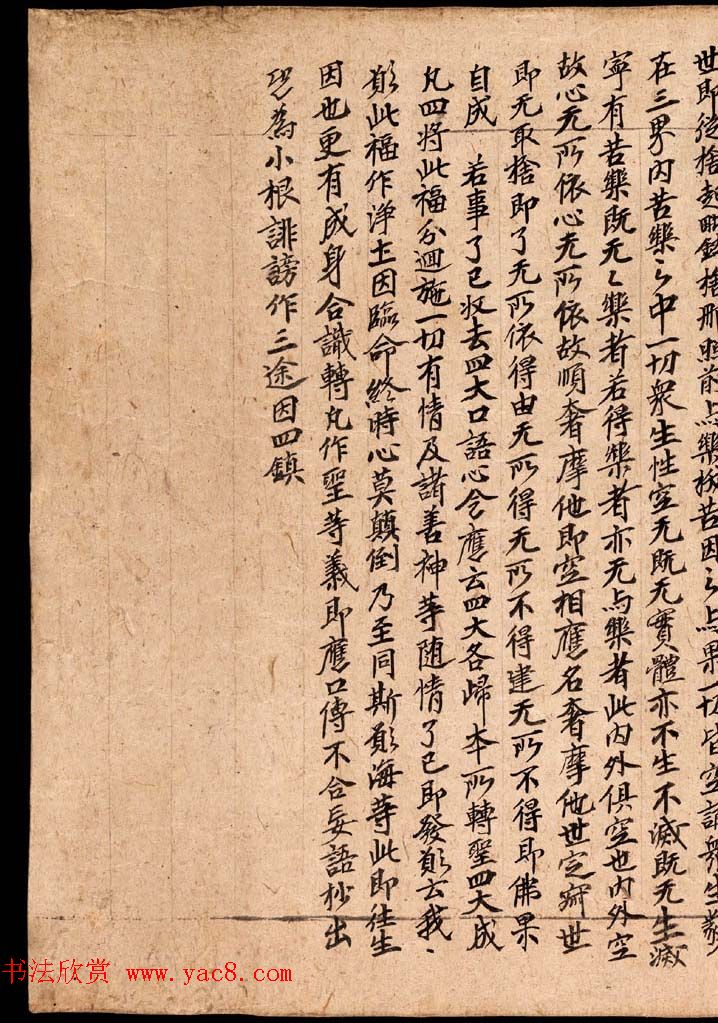 世即從捨起
在三界内苦樂之中一切衆生性空无既无實體亦不生不滅既无生滅
寧有苦樂既无〻樂者若得樂者亦无与樂者此内外俱空也内外空
故心无所依心无所依故順奢摩他即空相應名奢摩他世定
即无取捨即了无所依得由无所得无所不得建无所不得即佛果
自成 若事了已收去四大口語心念應云四大各歸本所轉聖四大成
凡四將此福分迴施一切有情及諸善神等随情了已即發願云我〻
願此福作淨土因臨命終時心莫顛倒乃至同斯願海等此即往生
因也更有成身合識轉凡作聖等義即應口傳不合妄語抄出
恐為小根誹謗作三途因四鎮
书法欣赏 www.yac8.com